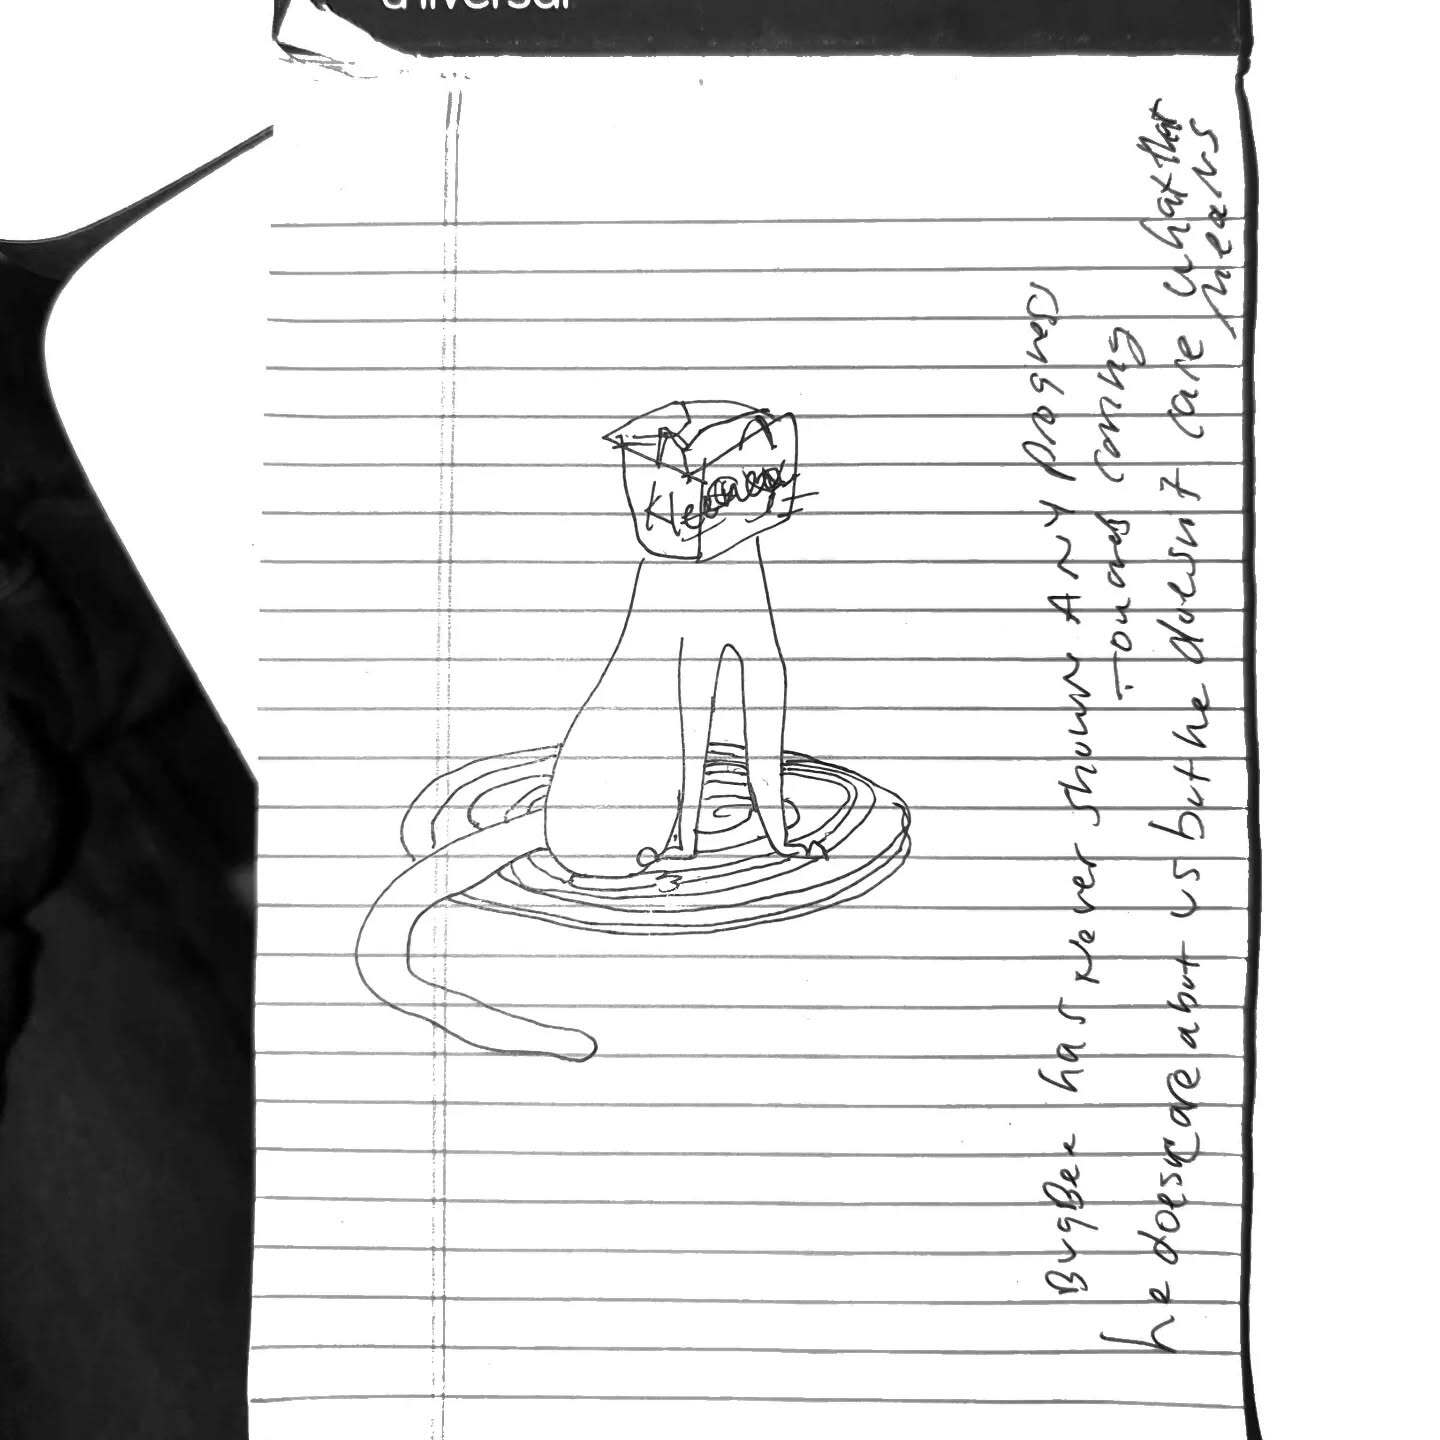 universal
Kleenex
BugBee has Never shown ANY Progress
Towards caring
he doesn't care about us but he doesn't care what that
means